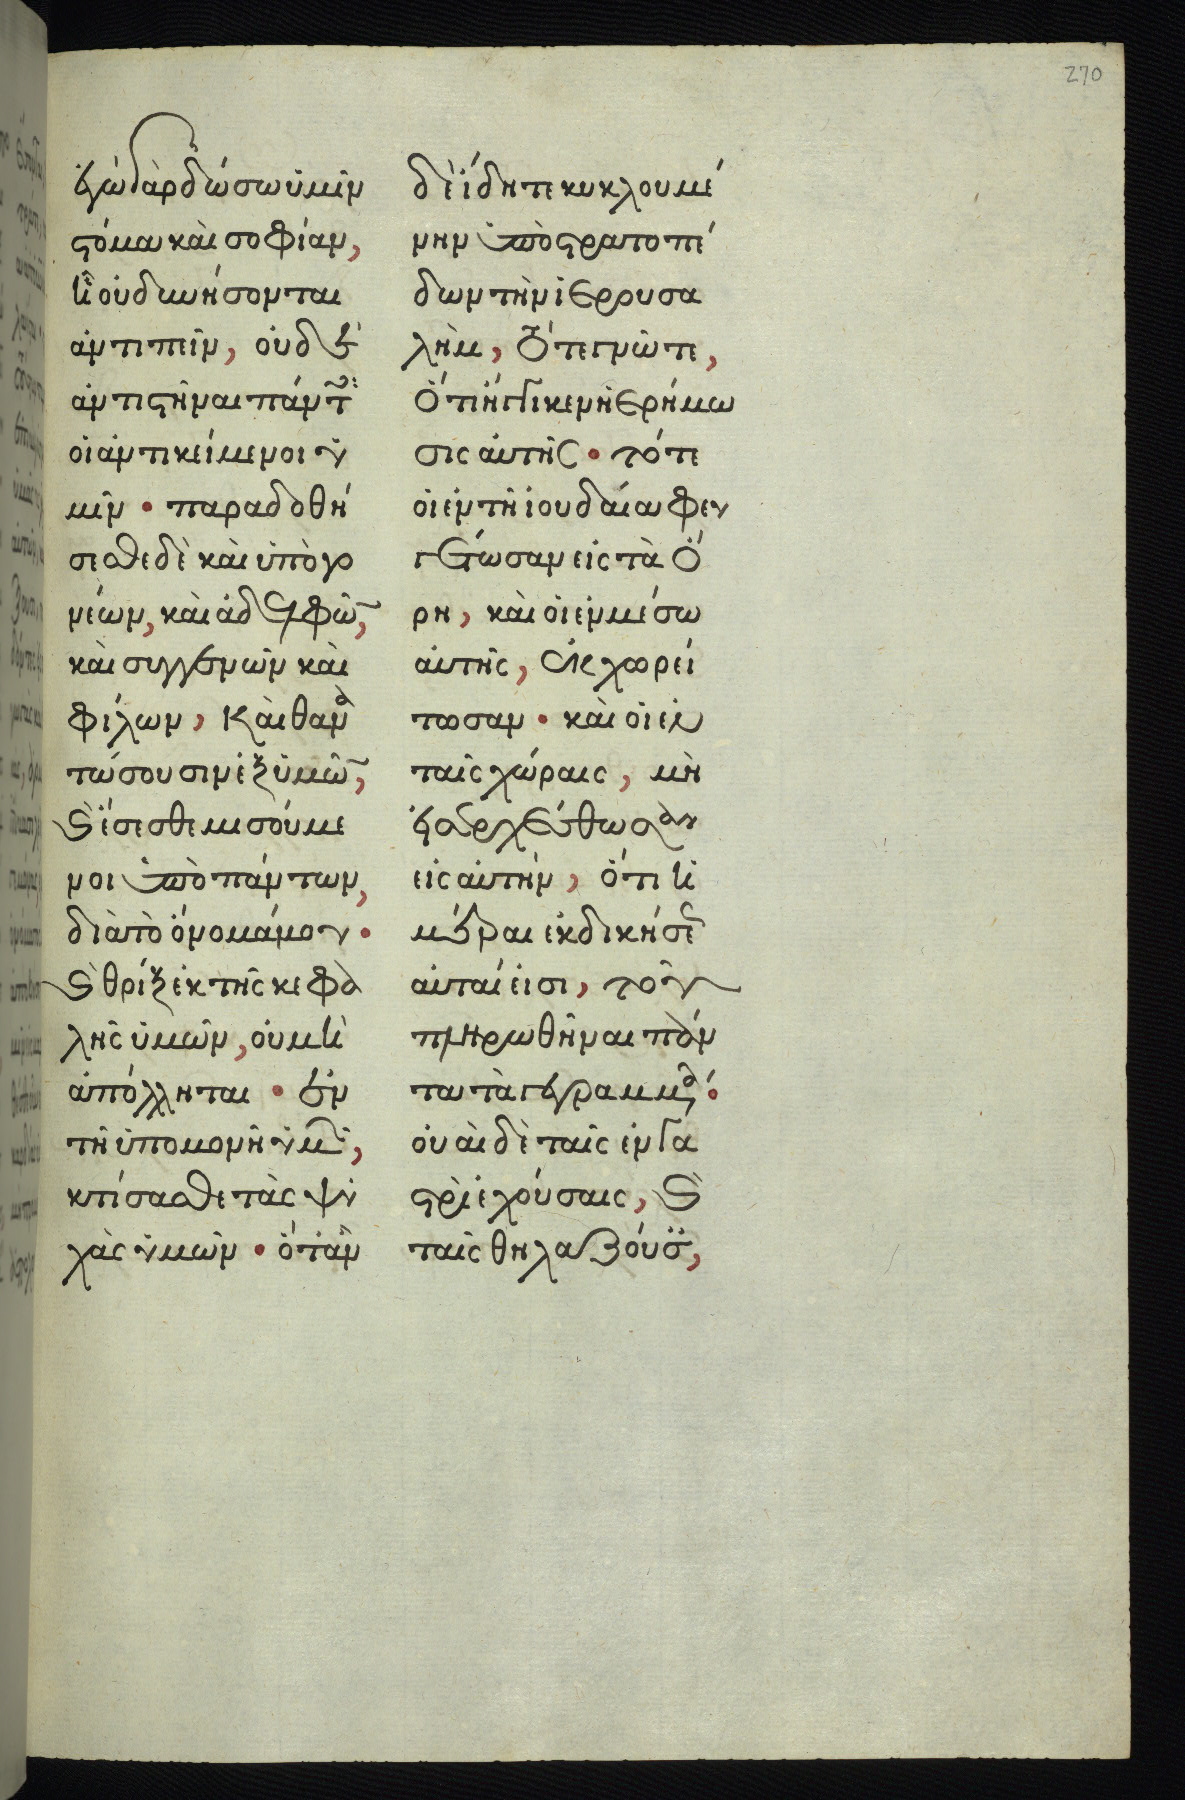 270
ἐγὼ γὰρ δώσω ὑμῖν
στόμα καὶ σοφίαν,
ᾗ οὐ δυνήσονται
ἀντιπεῖν, οὐδὲ
ἀντιστῆναι πάντ
οἱ ἀντικείμενοι ὑ
μῖν · παραδοθή
σεσθε δὲ καὶ ὑπὸ γο
νέων, καὶ ἀδελφῶ,
καὶ συγγενῶν καὶ
φίλων, καὶ θανα
τώσουσιν ἐξ ὑμῶ,
καὶ ἔσεσθε μισούμε
νοι ὑπὸ πάντων,
διὰ τὸ ὄνομά μου ·
καὶ θρὶξ ἐκ τῆς κεφα
λῆς ὑμῶν, οὐ μὴ
ἀπόληται · ἐν
τῇ ὑπομονῇ ὑμ,
κτήσασθε τὰς ψυ
χὰς ὑμῶν · ὅταν
δὲ ἴδητε κυκλουμέ
νην ὑπὸ στρατοπέ
δων τὴν ἱερουσα
λὴμ, τότε γνῶτε,
ὅτι ἤγγικεν ἡ ἐρήμω
σις αὐτῆς · τότε
οἱ ἐν τῇ ἰουδαίᾳ φευ
γέτωσαν εἰς τὰ ὄ
ρη, καὶ οἱ ἐν μέσω
αὐτῆς, ἐκχωρεί
τωσαν · καὶ οἱ ἐν
ταῖς χώραις, μὴ
εἰσερχέσθωσαν
εἰς αὐτήν, ὅτι ἡ
μέραι ἐκδικήσε
αὗταί εἰσι, τοῦ
πληρωθῆναι πάν
τα τὰ γεγραμμέ ·
οὐαὶ δὲ ταῖς ἐν γα
στρὶ ἐχούσαις, καὶ
ταῖς θηλαζούσ,